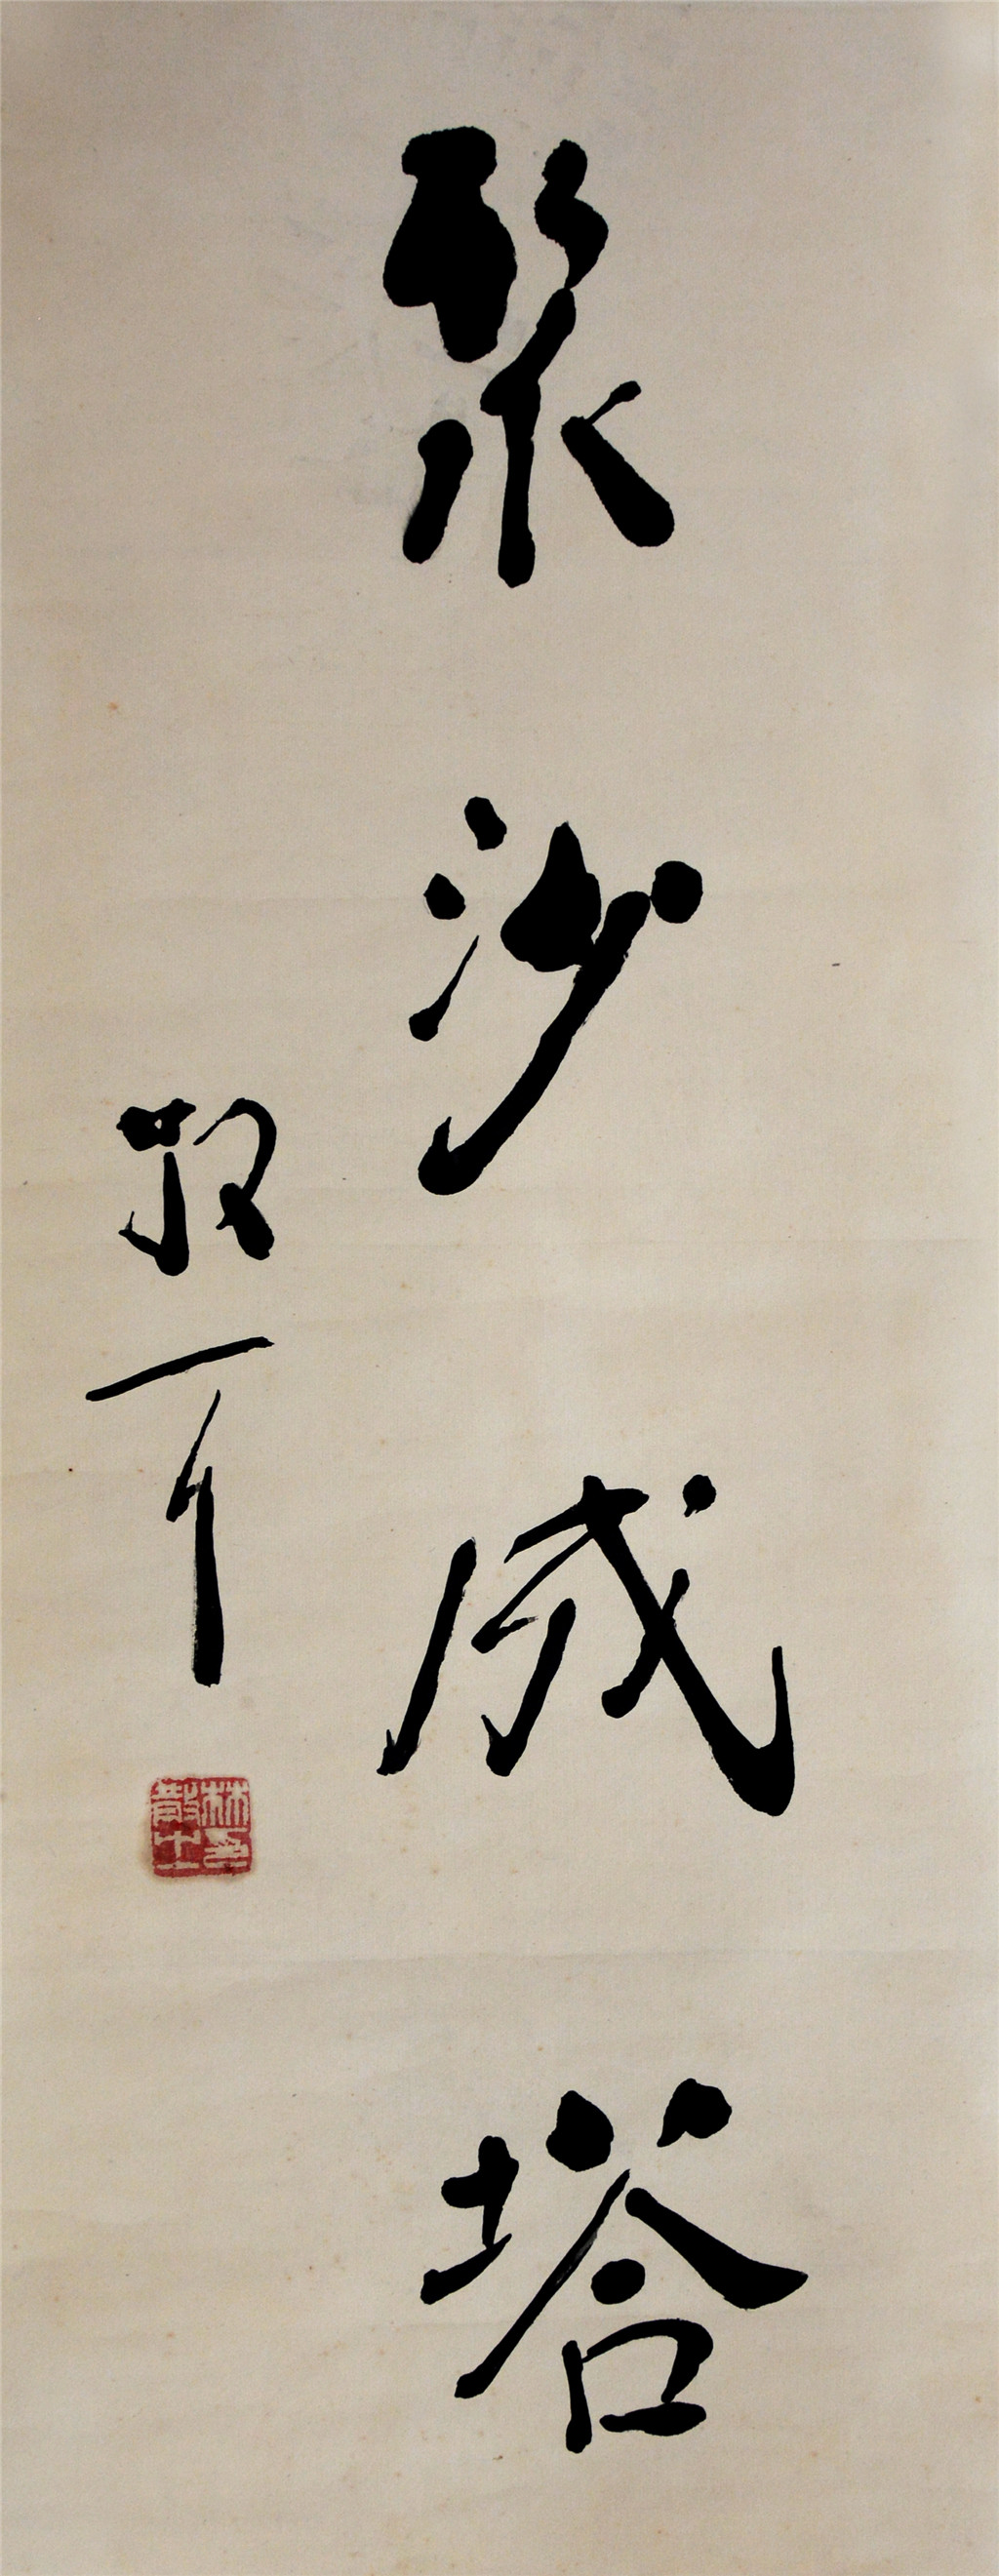 聚沙成塔
散耳
林印散之